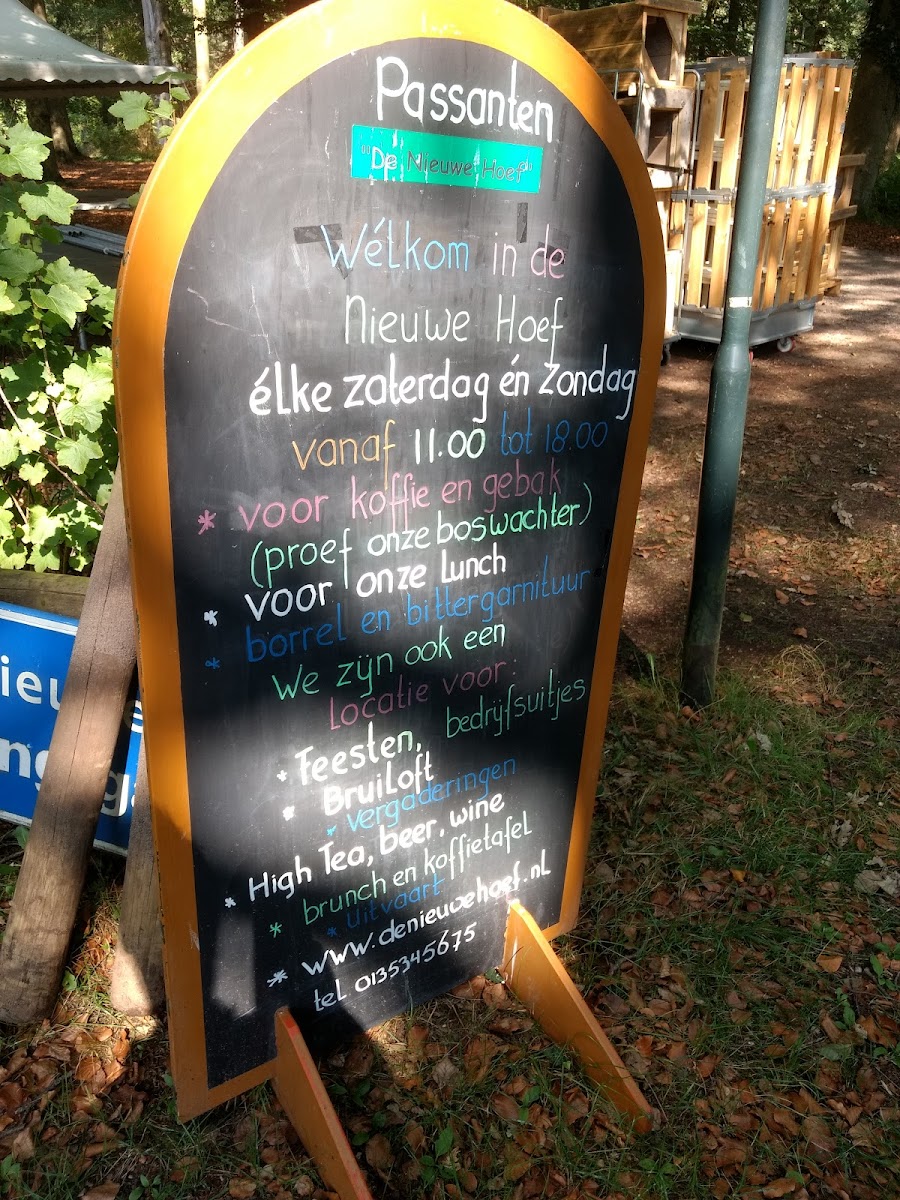 Passanten
"De Nieuwe Hoef"
Wélkom in de
Nieuwe Hoef
élke zaterdag én zondag
vanaf 11.00 tot 18.00
* voor koffie en gebak
(proef onze boswachter)
* voor onze lunch
* borrel en bittergarnituur
We zijn ook een
Locatie voor:
* Feesten, bedrijfsuitjes
* Bruiloft
* vergaderingen
* High Tea, beer, wine
* brunch en koffietafel
* uitvaart
* www.denieuwehoef.nl
tel 0135345675